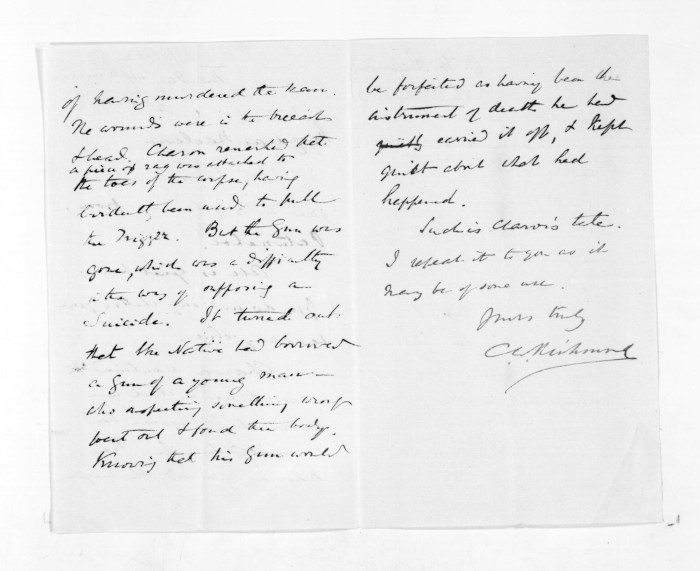 of having murdered the man.
The wounds were in the breast
& head. Clarvis remarked that
a piece of rag was attached to
the toes of the corpse, having
evidently been used to pull
the Trigger. But the Gun was
gone, which was a difficulty
in the way of supposing a
Suicide. It turned out
that the Native had borrowed
a Gun of a young man
who suspecting something wrong
went out & found the body.
Knowing that his Gun would
be forfeited as having been the
instrument of death he had
quietly carried it off, & kept
quiet about what had
happened.
Such is Clarvis's tale.
I repeat it to you as it
may be of some use.
Yours truly
C W Richmond